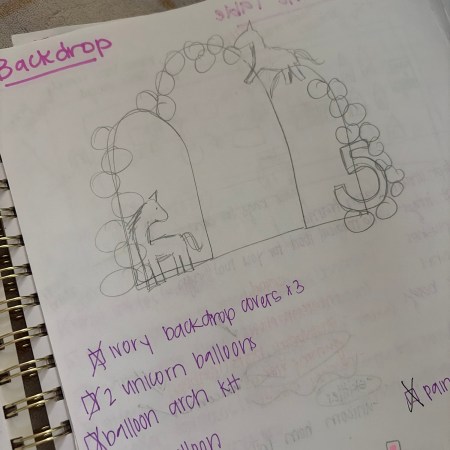 Backdrop
5
ivory backdrop covers x3
2 unicorn balloons
balloon arch kit